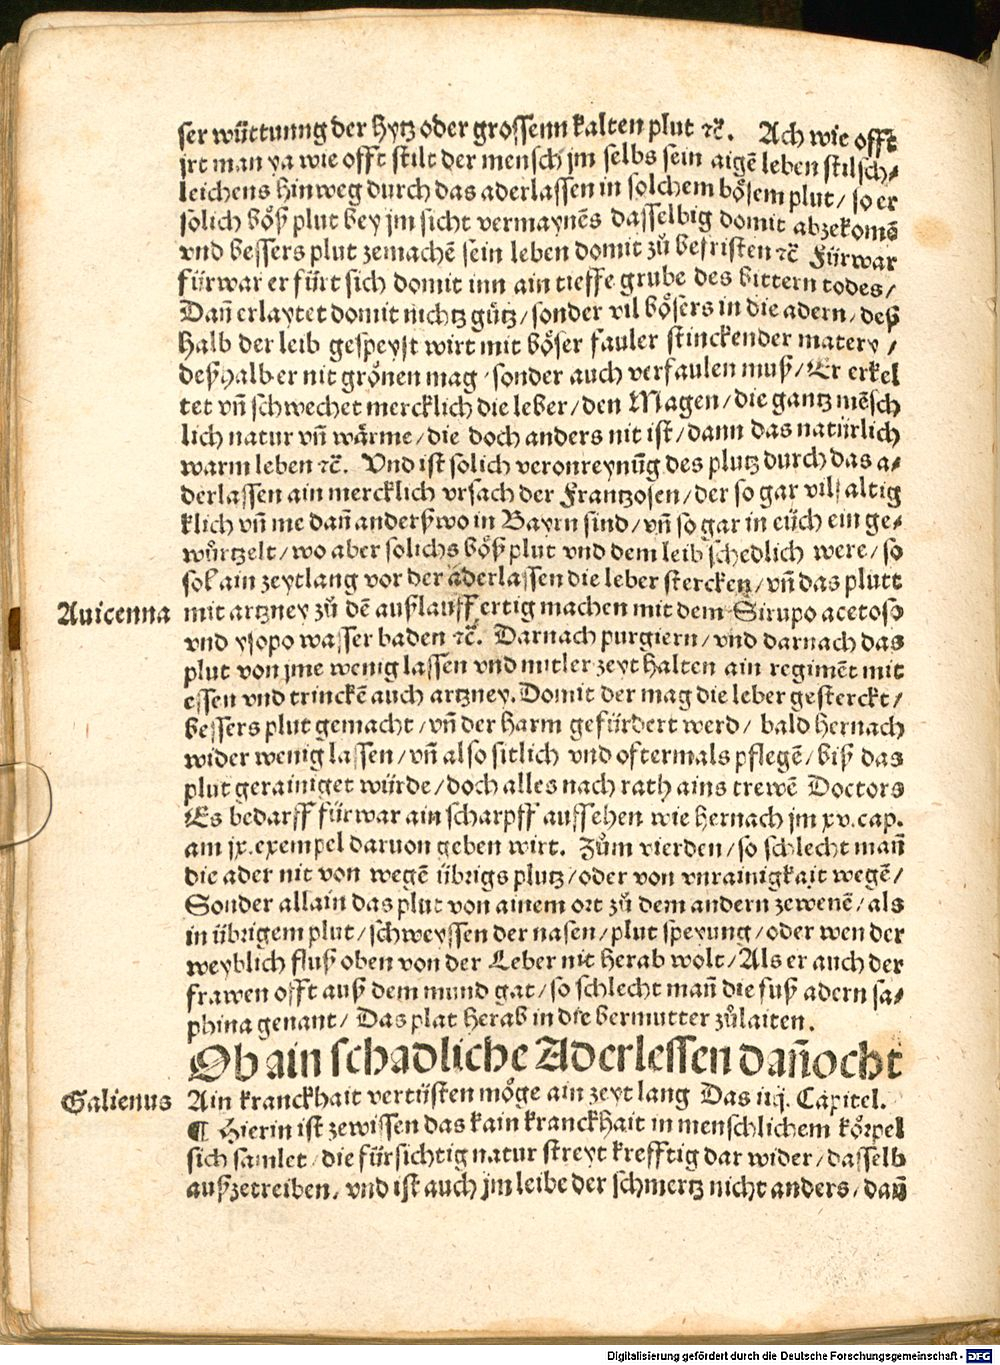 ser wüttunng der hytz oder grossenn kalten plut ⁊c̄. Ach wie offt
jrt man ya wie offt stilt der mensch jm selbs sein aigē leben stilsch⸗
leichens hinweg durch das aderlassen in solchem bösem plut / so er
solich böß plut bey jm sicht vermaynēs dasselbig domit abzekomē
vnd bessers plut zemachē sein leben domit zů befristen ⁊c̄ Fürwar
fürwar er fürt sich domit inn ain tieffe grube des bittern todes /
Dañ erlaytet domit nichtz gůtz / sonder vil bösers in die adern / deß
halb der leib gespeyst wirt mit böser fauler stinckender matery /
deßhalb er nit grönen mag / sonder auch verfaulen muß / Er erkel
tet vñ schwechet mercklich die leber / den Magen / die gantz mēsch
lich natur vñ wärme / die doch anders nit ist / dann das natürlich
warm leben ⁊c̄. Vnd ist solich veronreynūg des plutz durch das a⸗
derlassen ain mercklich vrsach der Frantzosen / der so gar vilfaltig
klich vñ me dañ anderßwo in Bayrn sind / vñ so gar in eüch ein ge⸗
würtzelt / wo aber solichs böß plut vnd dem leib schedlich were / so
sol ain zeytlang vor der aderlassen die leber stercken / vñ das plutt
Auicenna mit artzney zů dē außlauff ertig machen mit dem Sirupo acetoso
vnd ysopo wasser baden ⁊c̄. Darnach purgiern / vnd darnach das
plut von jme wenig lassen vnd mitler zeyt halten ain regimēt mit
essen vnd trinckē auch artzney. Domit der mag die leber gesterckt /
bessers plut gemacht / vñ der harm gefürdert werd / bald hernach
wider wenig lassen / vñ also sitlich vnd oftermals pflegē / biß das
plut gerainiget würde / doch alles nach rath ains trewē Doctors
Es bedarff fürwar ain scharpff auffsehen wie hernach jm xv. cap.
am jx. exempel daruon geben wirt. Zům vierden / so schlecht mañ
die ader nit von wegē übrigs plutz / oder von vnrainigkait wegē /
Sonder allain das plut von ainem ort zů dem andern zewenē / als
in übrigem plut / schweyssen der nasen / plut speyung / oder wen der
weyblich fluß oben von der Leber nit herab wolt / Als er auch der
frawen offt auß dem mund gat / so schlecht mañ die fuß adern sa⸗
phina genant / Das plat herab in die bermutter zůlaiten.
Ob ain schadliche Aderlessen dañocht
Galienus Ain kranckhait vertüsten möge ain zeyt lang Das iiij. Capitel.
¶ Hierin ist zewissen das kain kranckhait in menschlichem körpel
sich samlet / die fürsichtig natur streyt krefftig dar wider / dasselb
außzetreiben / vnd ist auch jm leibe der schmertz nicht anders / dañ
Digitalisierung gefördert durch die Deutsche Forschungsgemeinschaft - DFG